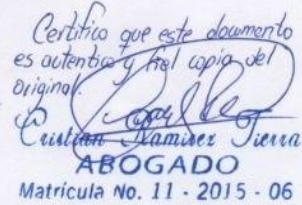 Certifico que este documento
es autentico y fiel copia del
original.
Cristian Ramirez Tierra
ABOGADO
Matricula No. 11 - 2015 - 06